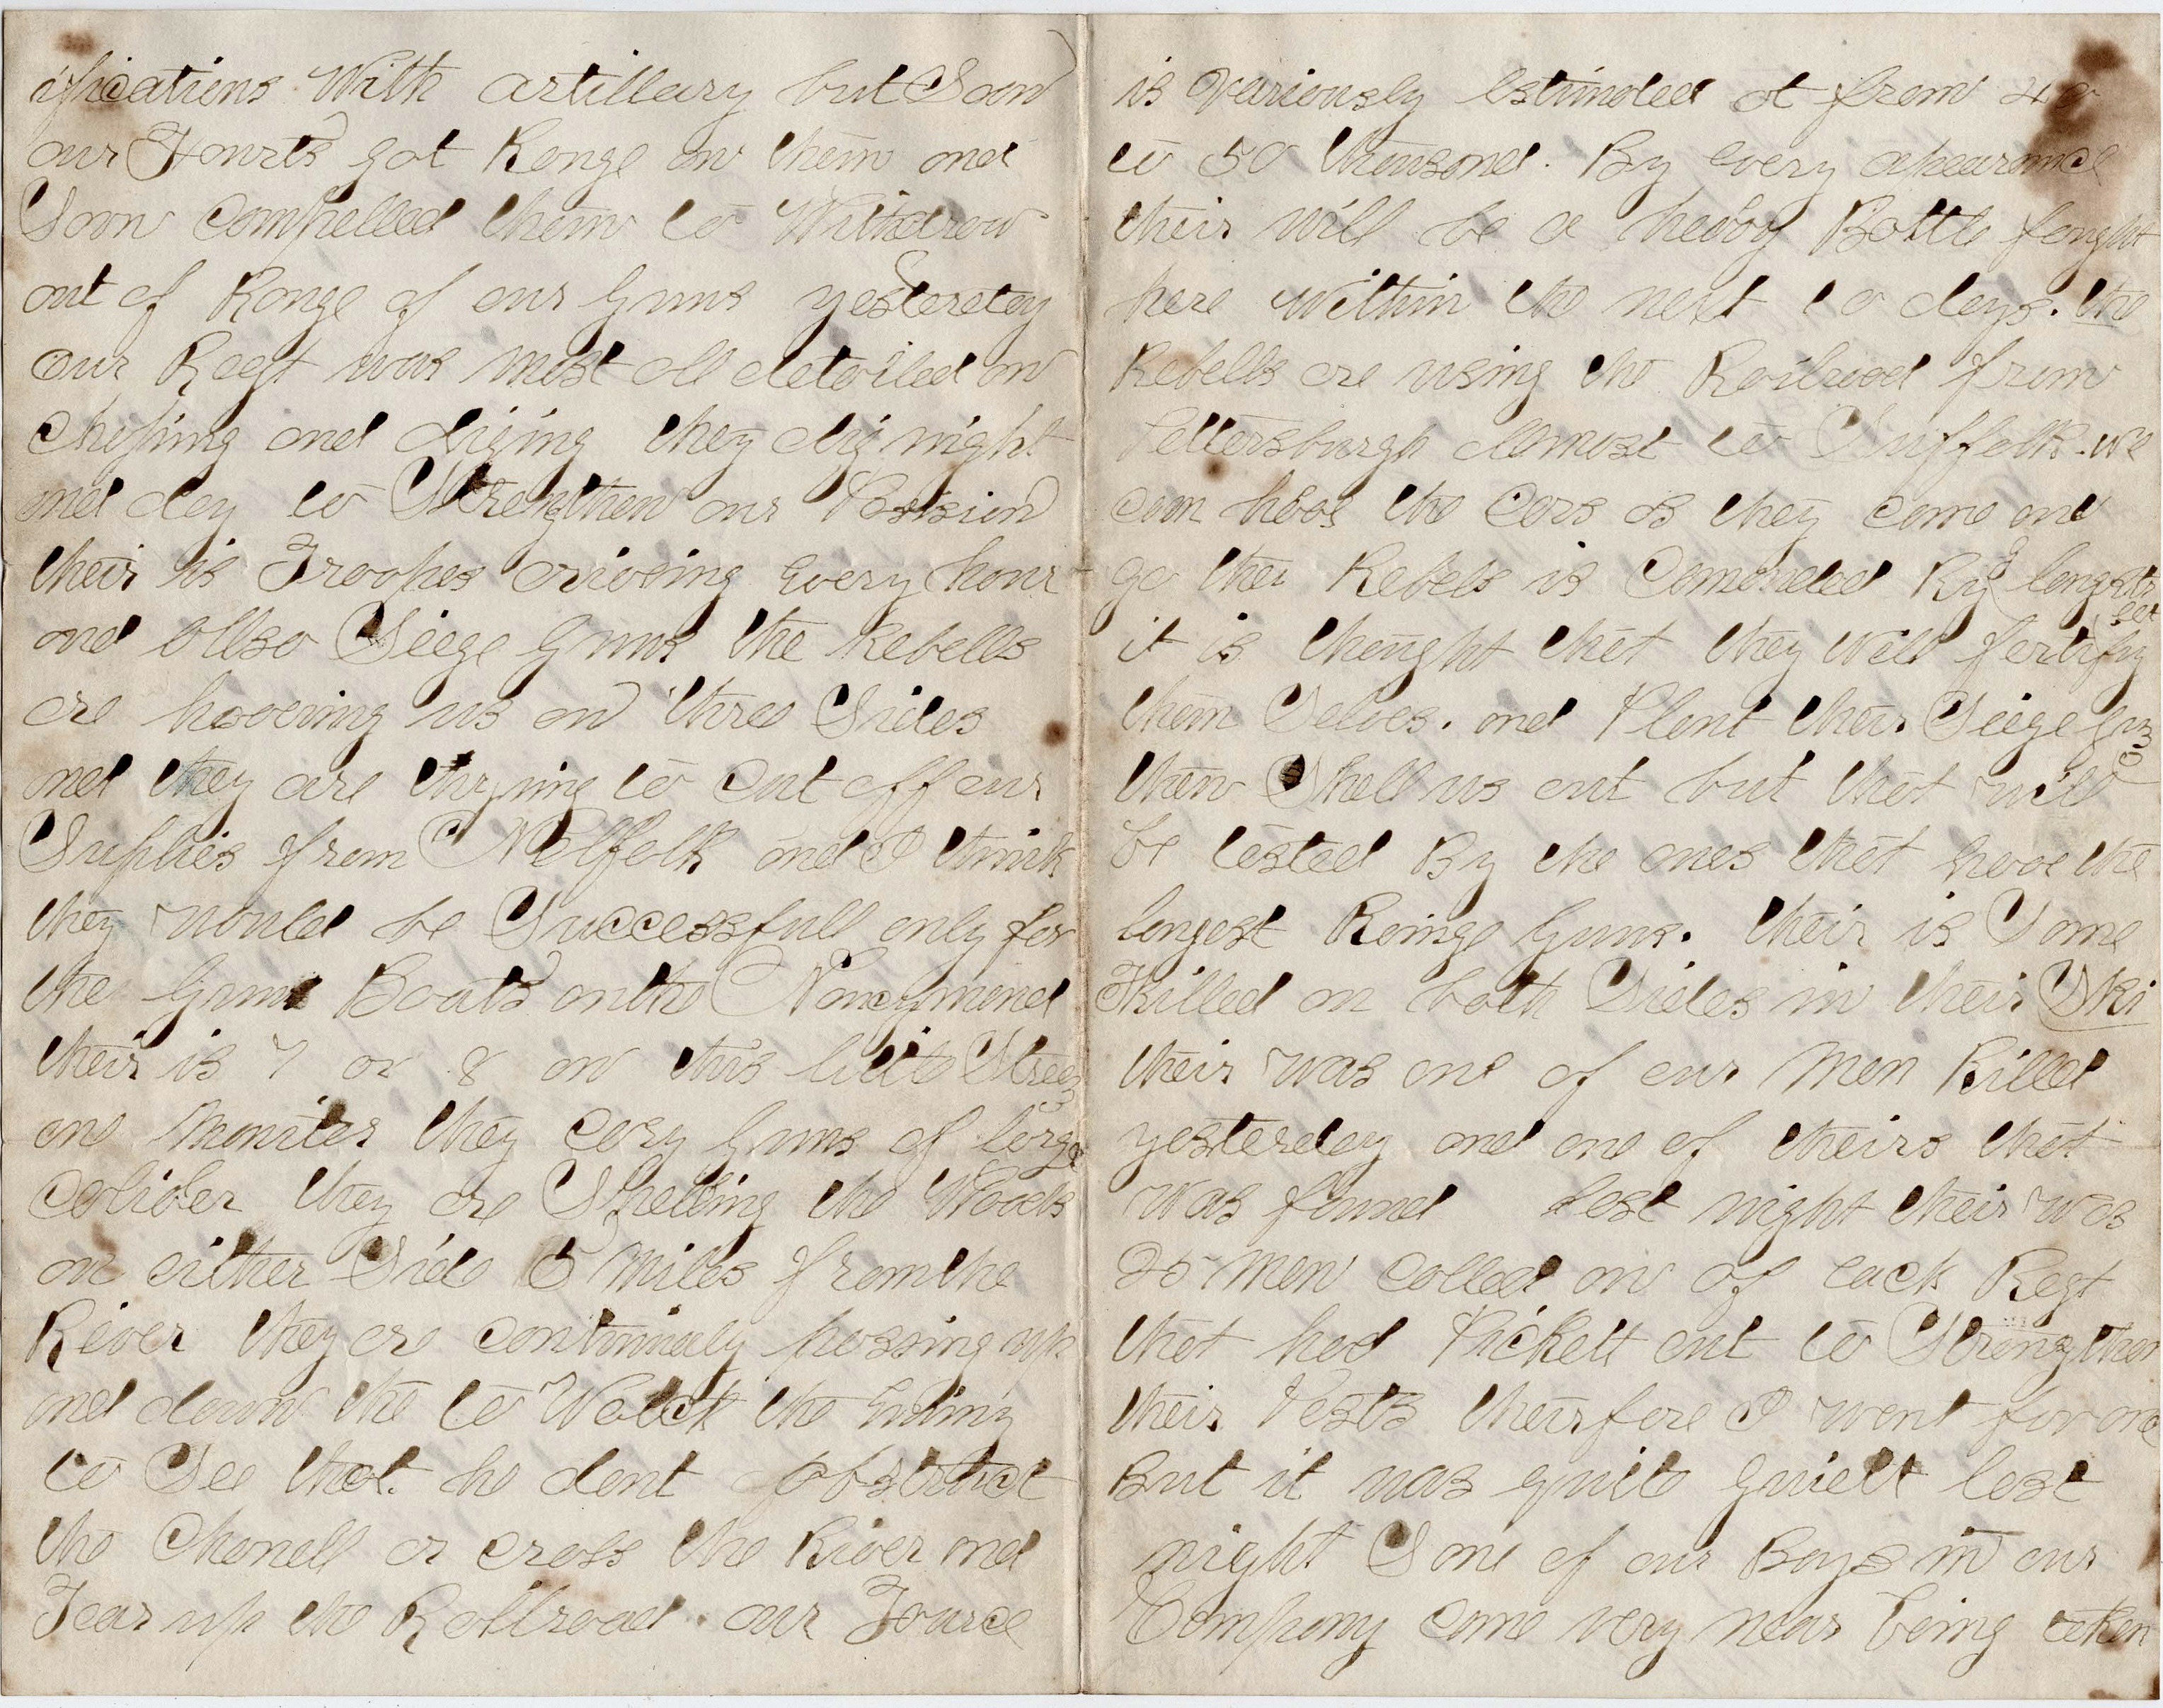 ifications With artillary but Soon
our Fourts got Range on them and
Soon Compelled them to Withdraw
out of Range of our Guns yesterday
our Regt was most all detailed on
Choping and diging they dig night
and day to Strengthen our Possiion
their is Troopes ariveing every hour
and allso Siege Guns the Rebells
are haveing us on three Sides
and they are trying to Cut off our
Suplies from Nolfolk and I think
they would be Successfull only for
the Gunn Boats on the Nancymond
their is 7 or 8 on this little Stream
one Moniter they cary Guns of large
Caliber they are Shelling the Woods
on either Side 5 Miles from the
River they are Continualy passing up
and down the to Watch the Enimy
to See that he dont obstruct
the Chanell or cross the River and
Tear up the Railroad. our Fource
is Variously Estimated at from 40
to 50 thousand. By every apearance
their will be a heavy Battle fought
here Within the next 10 days. the
Rebells are using the Railroad from
Pettersburgh allmost to Suffolk. we
can hear the Cars as they Come and
go the Rebels is Comanded By longstreet
it is thought that they Will fortify
them Selves. and Plant their Siege Guns
then Shell us out but that will
be tested By the ones that have the
longest Rainge Guns. their is Some
Killed on both Sides in their Ski
their was one of our Men Killed
yesterday and one of theirs that
was found last night their was
25 Men Called on of each Regt
that had Pickett out to Strengthen
their Posts theirfore I went for one
But it was quite quiett last
night Some of our Boys in our
Company Came very near being taken